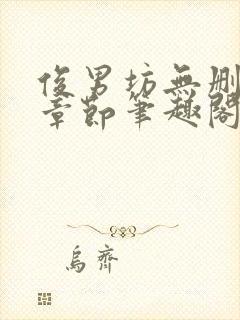 俊男坊無刪
章節筆趣閣
烏齊